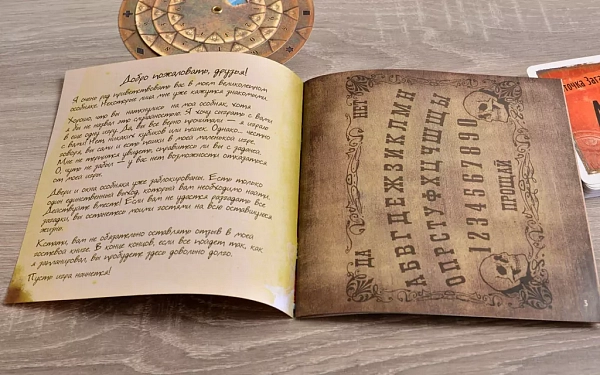 Добро пожаловать, друзья!
Я очень рад приветствовать вас в моем великолепном
особняке. Некоторые лица мне уже кажутся знакомыми.
Хорошо, что вы наткнулись на мой особняк, хотя
я бы не назвал это случайностью. Я хочу сыграть с вами
в еще одну игру. Да, вы все верно прочитали — я играю
с вами! Нет никаких кубиков или пешек. Однако... честно
говоря, вы сами и есть пешки в моей маленькой игре.
Мне не терпится увидеть, справитесь ли вы с задачей.
О, чуть не забыл — у вас нет возможности отказаться
от моей игры.
Двери и окна особняка уже заблокированы. Есть только
один единственный выход, который вам необходимо найти.
Действуйте вместе! Если вам не удастся разгадать все
загадки, вы останетесь моими гостями на всю оставшуюся
жизнь.
Кстати, вам не обязательно оставлять отзыв в моей
гостевой книге. В конце концов, если все пойдет так, как
я запланировал, вы пробудете здесь довольно долго.
Пусть игра начнется!
ДА
НЕТ
АБВГДЕЖЗИКЛМН
ОПРСТУФХЦЧШЩЫ
1234567890
ПРОЩАЙ
3
точка Зага